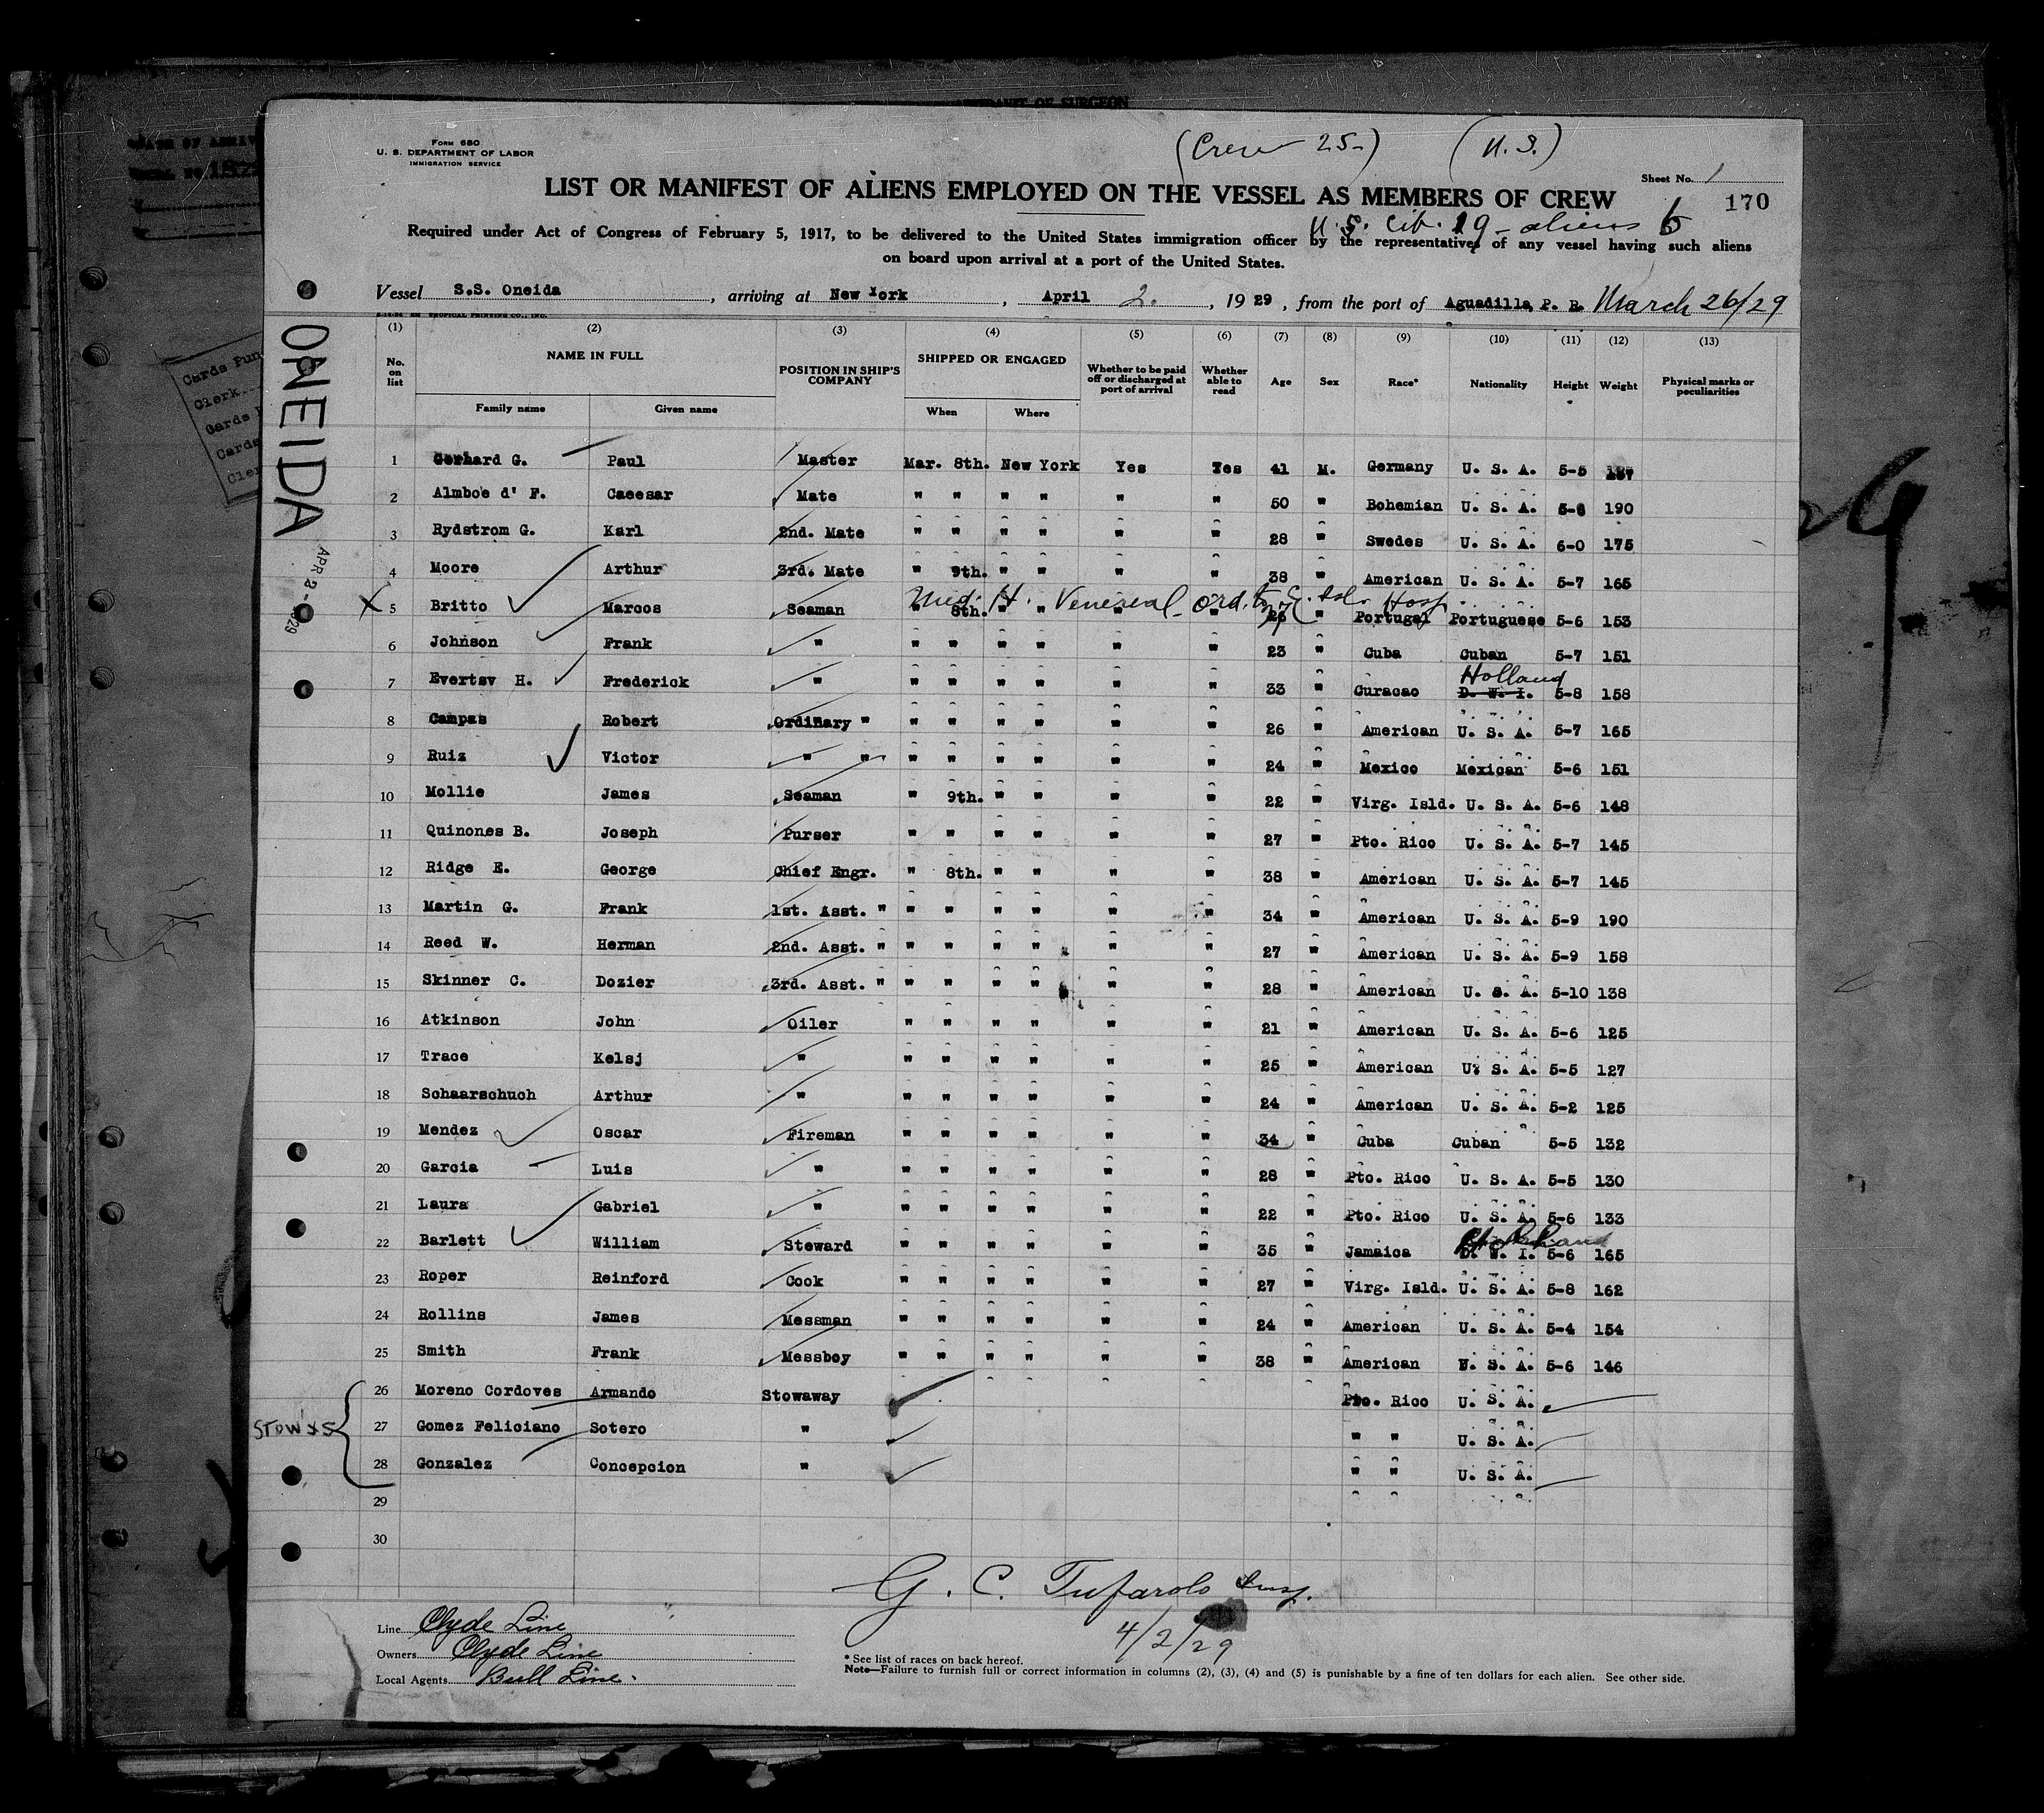 AFFIDAVIT OF SURGEON
Form 680
U. S. DEPARTMENT OF LABOR
IMMIGRATION SERVICE
(Crew 25-) (U.S.)
Sheet No. 1
LIST OR MANIFEST OF ALIENS EMPLOYED ON THE VESSEL AS MEMBERS OF CREW
170
U.S. Cit. 19 - aliens 6
Required under Act of Congress of February 5, 1917, to be delivered to the United States immigration officer by the representatives of any vessel having such aliens
on board upon arrival at a port of the United States.
Vessel S.S. Oneida, arriving at New York, April 2., 1929, from the port of Aguadilla, P. R. March 26/29
ONEIDA
APR 2 - 1929
(1) (2) (3) (4) (5) (6) (7) (8) (9) (10) (11) (12) (13)
No. on list NAME IN FULL POSITION IN SHIP'S COMPANY SHIPPED OR ENGAGED Whether to be paid off or discharged at port of arrival Whether able to read Age Sex Race* Nationality Height Weight Physical marks or peculiarities
Family name Given name When Where
1 Gerhard G. Paul Master Mar. 8th. New York Yes Yes 41 M. Germany U. S. A. 5-5
2 Almboe d' F. Caeesar Mate " " " " " " 50 " Bohemian U. S. A. 5-6 190
3 Rydstrom G. Karl 2nd. Mate " " " " " " 28 " Swedes U. S. A. 6-0 175
4 Moore Arthur 3rd. Mate " 9th. " " " " 38 " American U. S. A. 5-7 165
Med. H. Venereal Hosp
X 5 Britto Marcos Seaman " 8th. " " " " 26 " Portugal Portuguese 5-6 153
6 Johnson Frank " " " " " " " 23 " Cuba Cuban 5-7 151
Holland
7 Evertsv H. Frederick " " " " " " " 33 " Curacao D. W. I. 5-8 158
8 Campas Robert Ordinary " " " " " " " 26 " American U. S. A. 5-7 165
9 Ruiz Victor " " " " " " " " 24 " Mexico Mexican 5-6 151
10 Mollie James Seaman " 9th. " " " " 22 " Virg. Isld. U. S. A. 5-6 148
11 Quinones B. Joseph Purser " " " " " " 27 " Pto. Rico U. S. A. 5-7 145
12 Ridge E. George Chief Engr. " 8th. " " " " 38 " American U. S. A. 5-7 145
13 Martin G. Frank 1st. Asst. " " " " " " " 34 " American U. S. A. 5-9 190
14 Reed W. Herman 2nd. Asst. " " " " " " " 27 " American U. S. A. 5-9 158
15 Skinner C. Dozier 3rd. Asst. " " " " " " " 28 " American U. S. A. 5-10 138
16 Atkinson John Oiler " " " " " " 21 " American U. S. A. 5-6 125
17 Trace Kelsj " " " " " " " 25 " American U. S. A. 5-5 127
18 Schaarschuch Arthur " " " " " " " 24 " American U. S. A. 5-2 125
19 Mendez Oscar Fireman " " " " " " 34 " Cuba Cuban 5-5 132
20 Garcia Luis " " " " " " " 28 " Pto. Rico U. S. A. 5-5 130
21 Laura Gabriel " " " " " " " 22 " Pto. Rico U. S. A. 5-6 133
22 Barlett William Steward " " " " " " 35 " Jamaica W. I. 5-6 165
23 Roper Reinford Cook " " " " " " 27 " Virg. Isld. U. S. A. 5-8 162
24 Rollins James Messman " " " " " " 24 " American U. S. A. 5-4 154
25 Smith Frank Messboy " " " " " " 38 " American U. S. A. 5-6 146
26 Moreno Cordoves Armando Stowaway Pto. Rico U. S. A.
27 Gomez Feliciano Sotero " " " U. S. A.
28 Gonzalez Concepcion " " " U. S. A.
29
30
G. C. Tufarolo Insp.
4/2/29
Line Clyde Line
Owners Clyde Line
Local Agents Bull Line.
* See list of races on back hereof.
Note—Failure to furnish full or correct information in columns (2), (3), (4) and (5) is punishable by a fine of ten dollars for each alien. See other side.